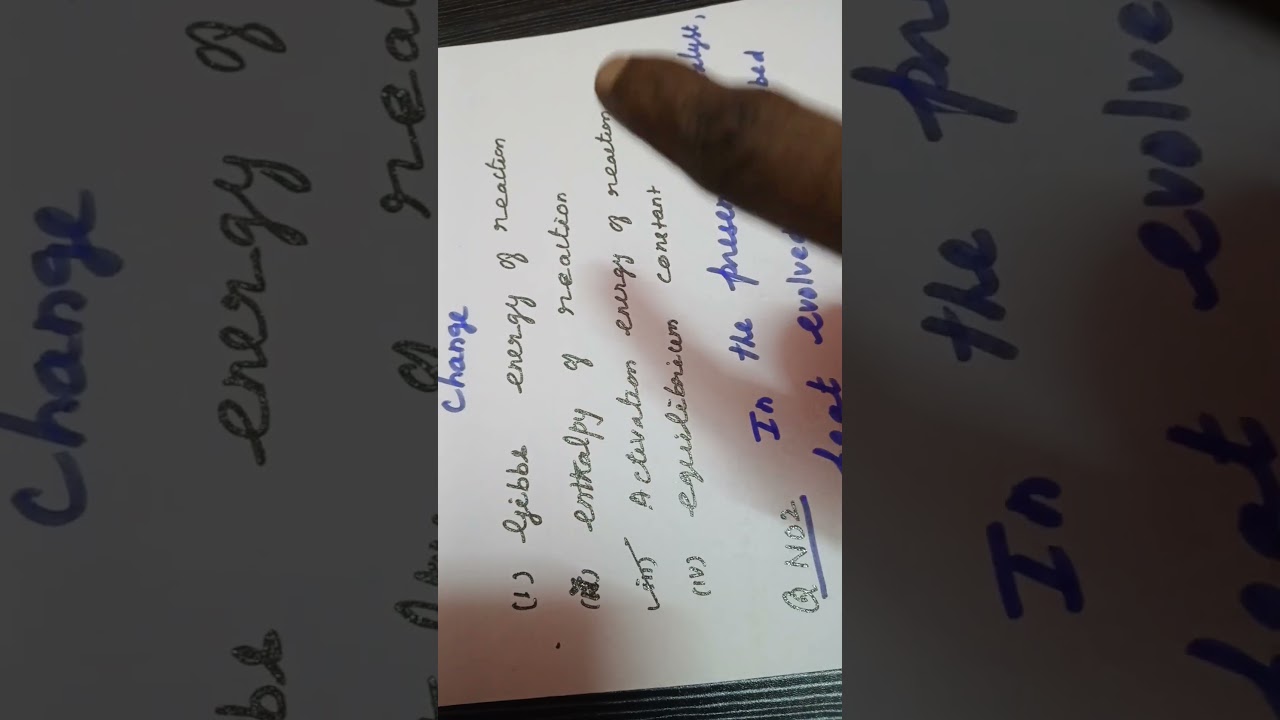 change
(i) Gibbs energy of reaction
(ii) enthalpy of reaction
(iii) Activation energy of reaction
(iv) equilibrium constant
Q NO2 In the presen alyst,
heat evolved bed